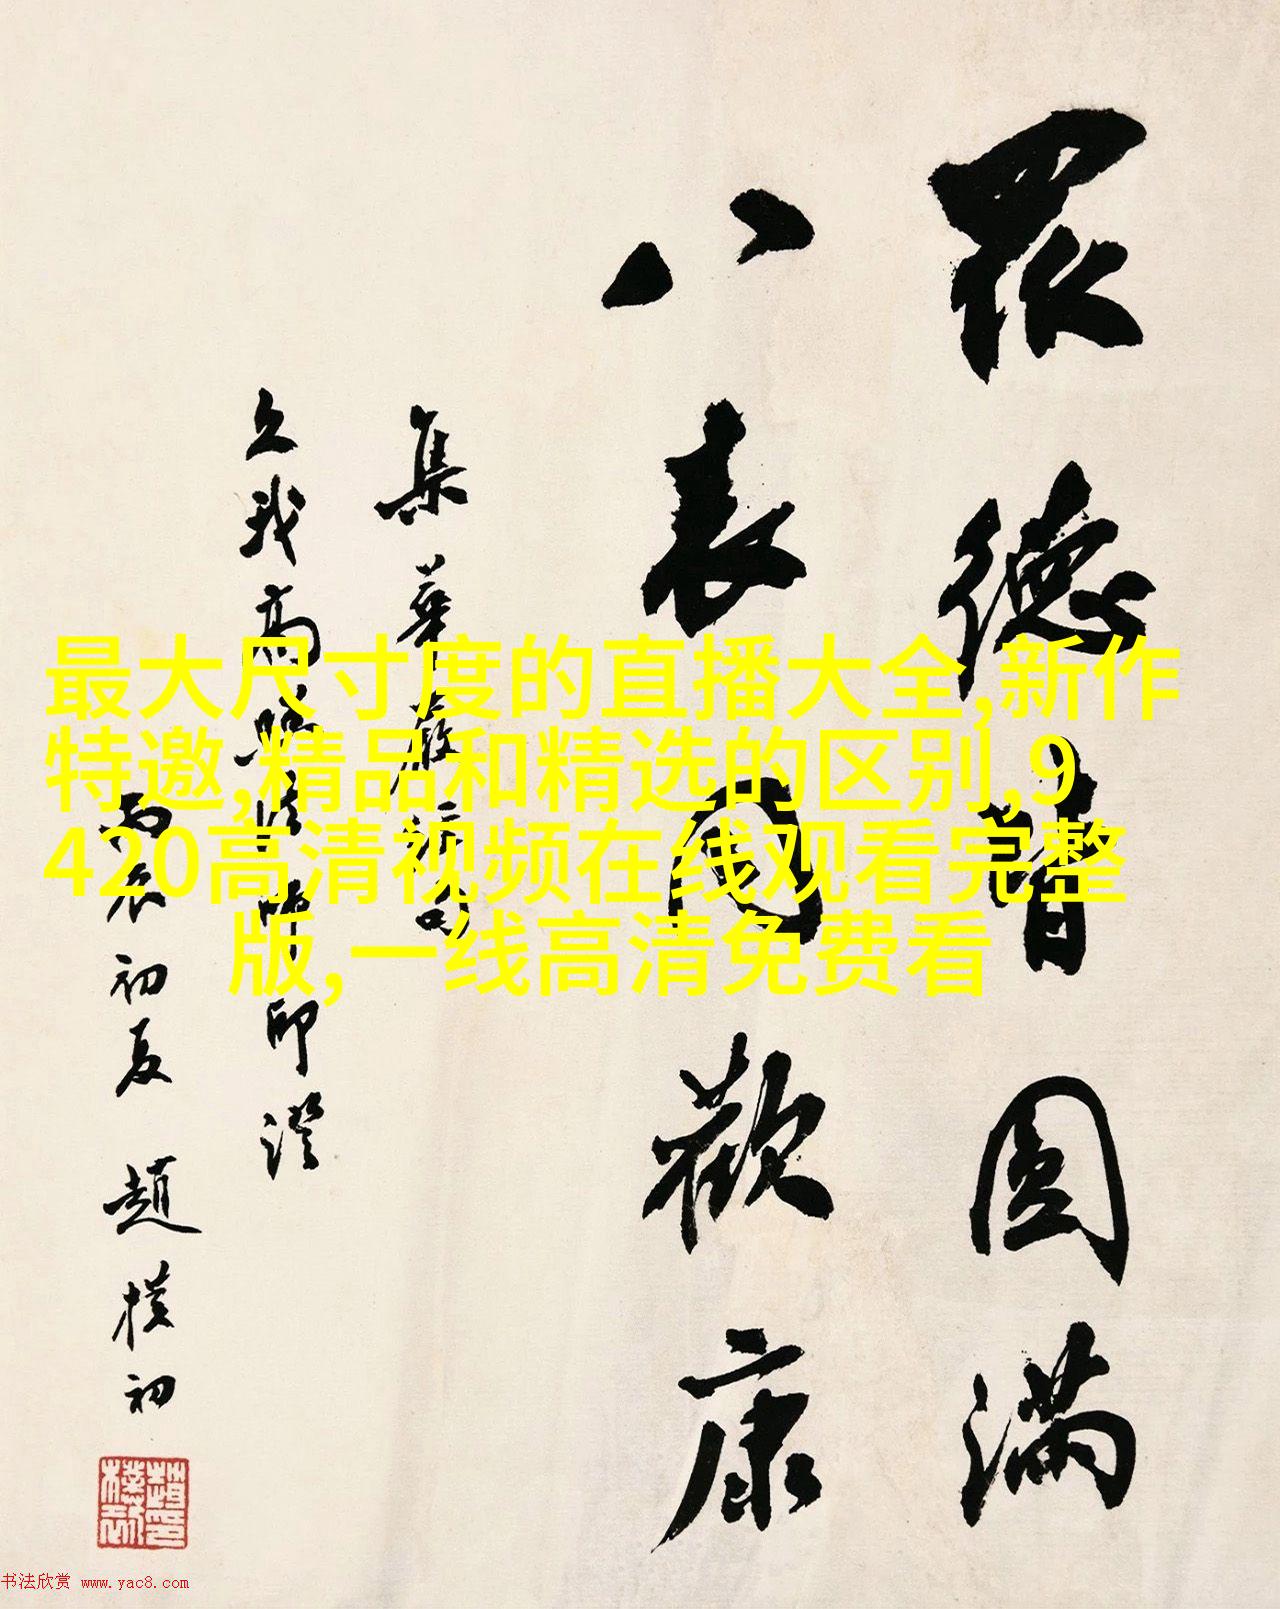 眾德圓滿
八表同歡康
集華嚴句
久我高印證
丙辰初夏 趙樸初
最大尺寸度的直播大全,新作
特邀,精品和精选的区别,9
420高清视频在线观看完整
版,一线高清免费看
书法欣赏 www.yac8.com